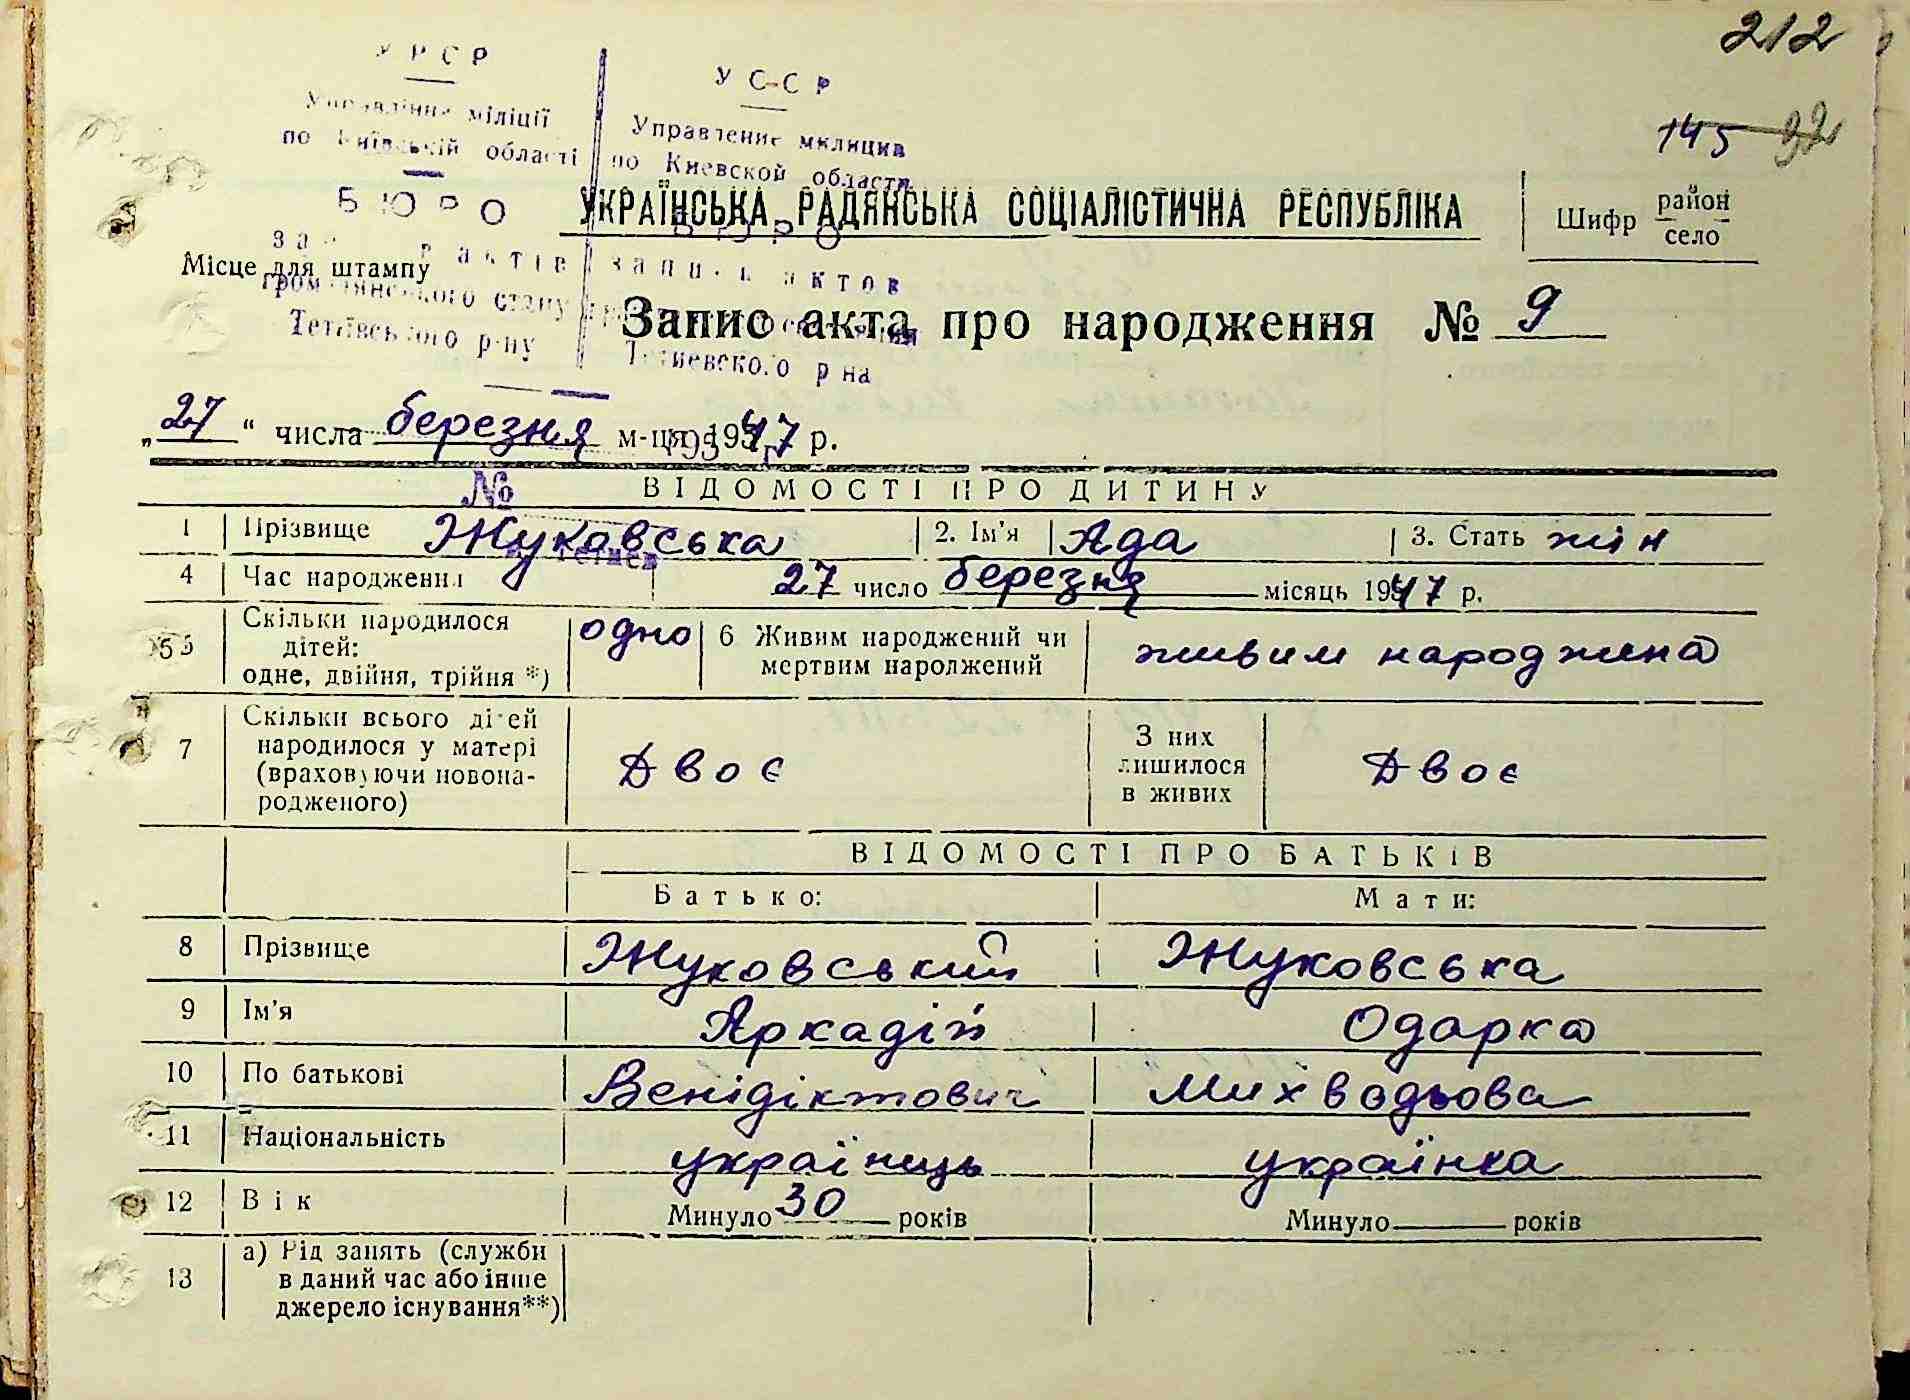 212
145 92
УРСР
Управління міліції
по Київській області
БЮРО
актів
громадянського стану
Тетіївського р-ну
УССР
Управление милиции
по Киевской области
БЮРО
записи актов
Тетиевского р на
УКРАЇНСЬКА РАДЯНСЬКА СОЦІАЛІСТИЧНА РЕСПУБЛІКА
Шифр район
село
Місце для штампу
Запис акта про народження № 9
„27“ числа березня м-ця 1947 р.
№
ВІДОМОСТІ ПРО ДИТИНУ
1 Прізвище Жуковська 2. Ім'я Ада 3. Стать жін
4 Час народження 27 число березня місяць 1947 р.
5 Скільки народилося
дітей:
одне, двійня, трійня *) одно 6 Живим народжений чи
мертвим народжений живим народжена
7 Скільки всього дітей
народилося у матері
(враховуючи новона-
родженого) Двоє З них
лишилося
в живих Двоє
ВІДОМОСТІ ПРО БАТЬКІВ
Батько: Мати:
8 Прізвище Жуковський Жуковська
9 Ім'я Аркадій Одарка
10 По батькові Венідіктович
11 Національність українць українка
12 Вік Минуло 30 років Минуло років
13 а) Рід занять (служби
в даний час або інше
джерело існування**)